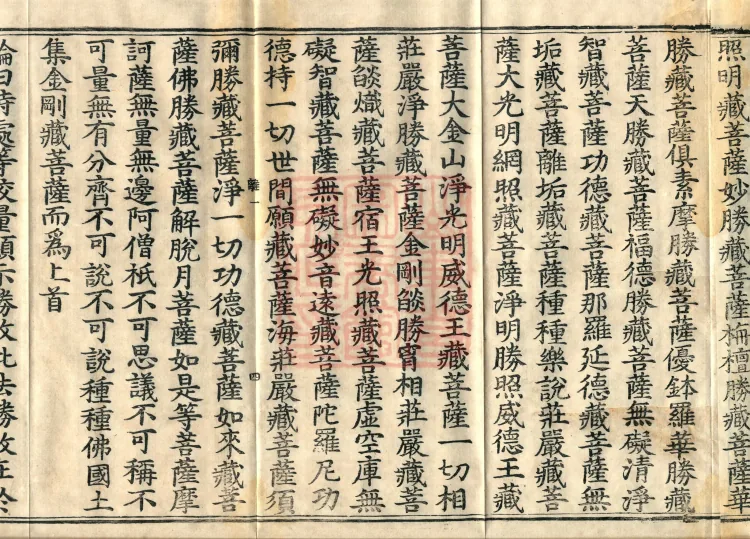 照明藏菩薩妙勝藏菩薩栴檀勝藏菩薩華
勝藏菩薩俱素摩勝藏菩薩優鉢羅華勝藏
菩薩天勝藏菩薩福德勝藏菩薩無礙清淨
智藏菩薩功德藏菩薩那羅延德藏菩薩無
垢藏菩薩離垢藏菩薩種種樂說莊嚴藏菩
薩大光明網照藏菩薩淨明勝照威德王藏
菩薩大金山淨光明威德王藏菩薩一切相
莊嚴淨勝藏菩薩金剛燄勝𮌎相莊嚴藏菩
薩燄熾藏菩薩宿王光照藏菩薩虛空庫無
礙智藏菩薩無礙妙音遠藏菩薩陀羅尼功
德持一切世間願藏菩薩海莊嚴藏菩薩須
彌勝藏菩薩淨一切功德藏菩薩如來藏菩
薩佛勝藏菩薩解脫月菩薩如是等菩薩摩
訶薩無量無邊阿僧祇不可思議不可稱不
可量無有分齊不可說不可說種種佛國土
集金剛藏菩薩而爲上首
論曰時處等校量顯示勝故此法勝故在於
四